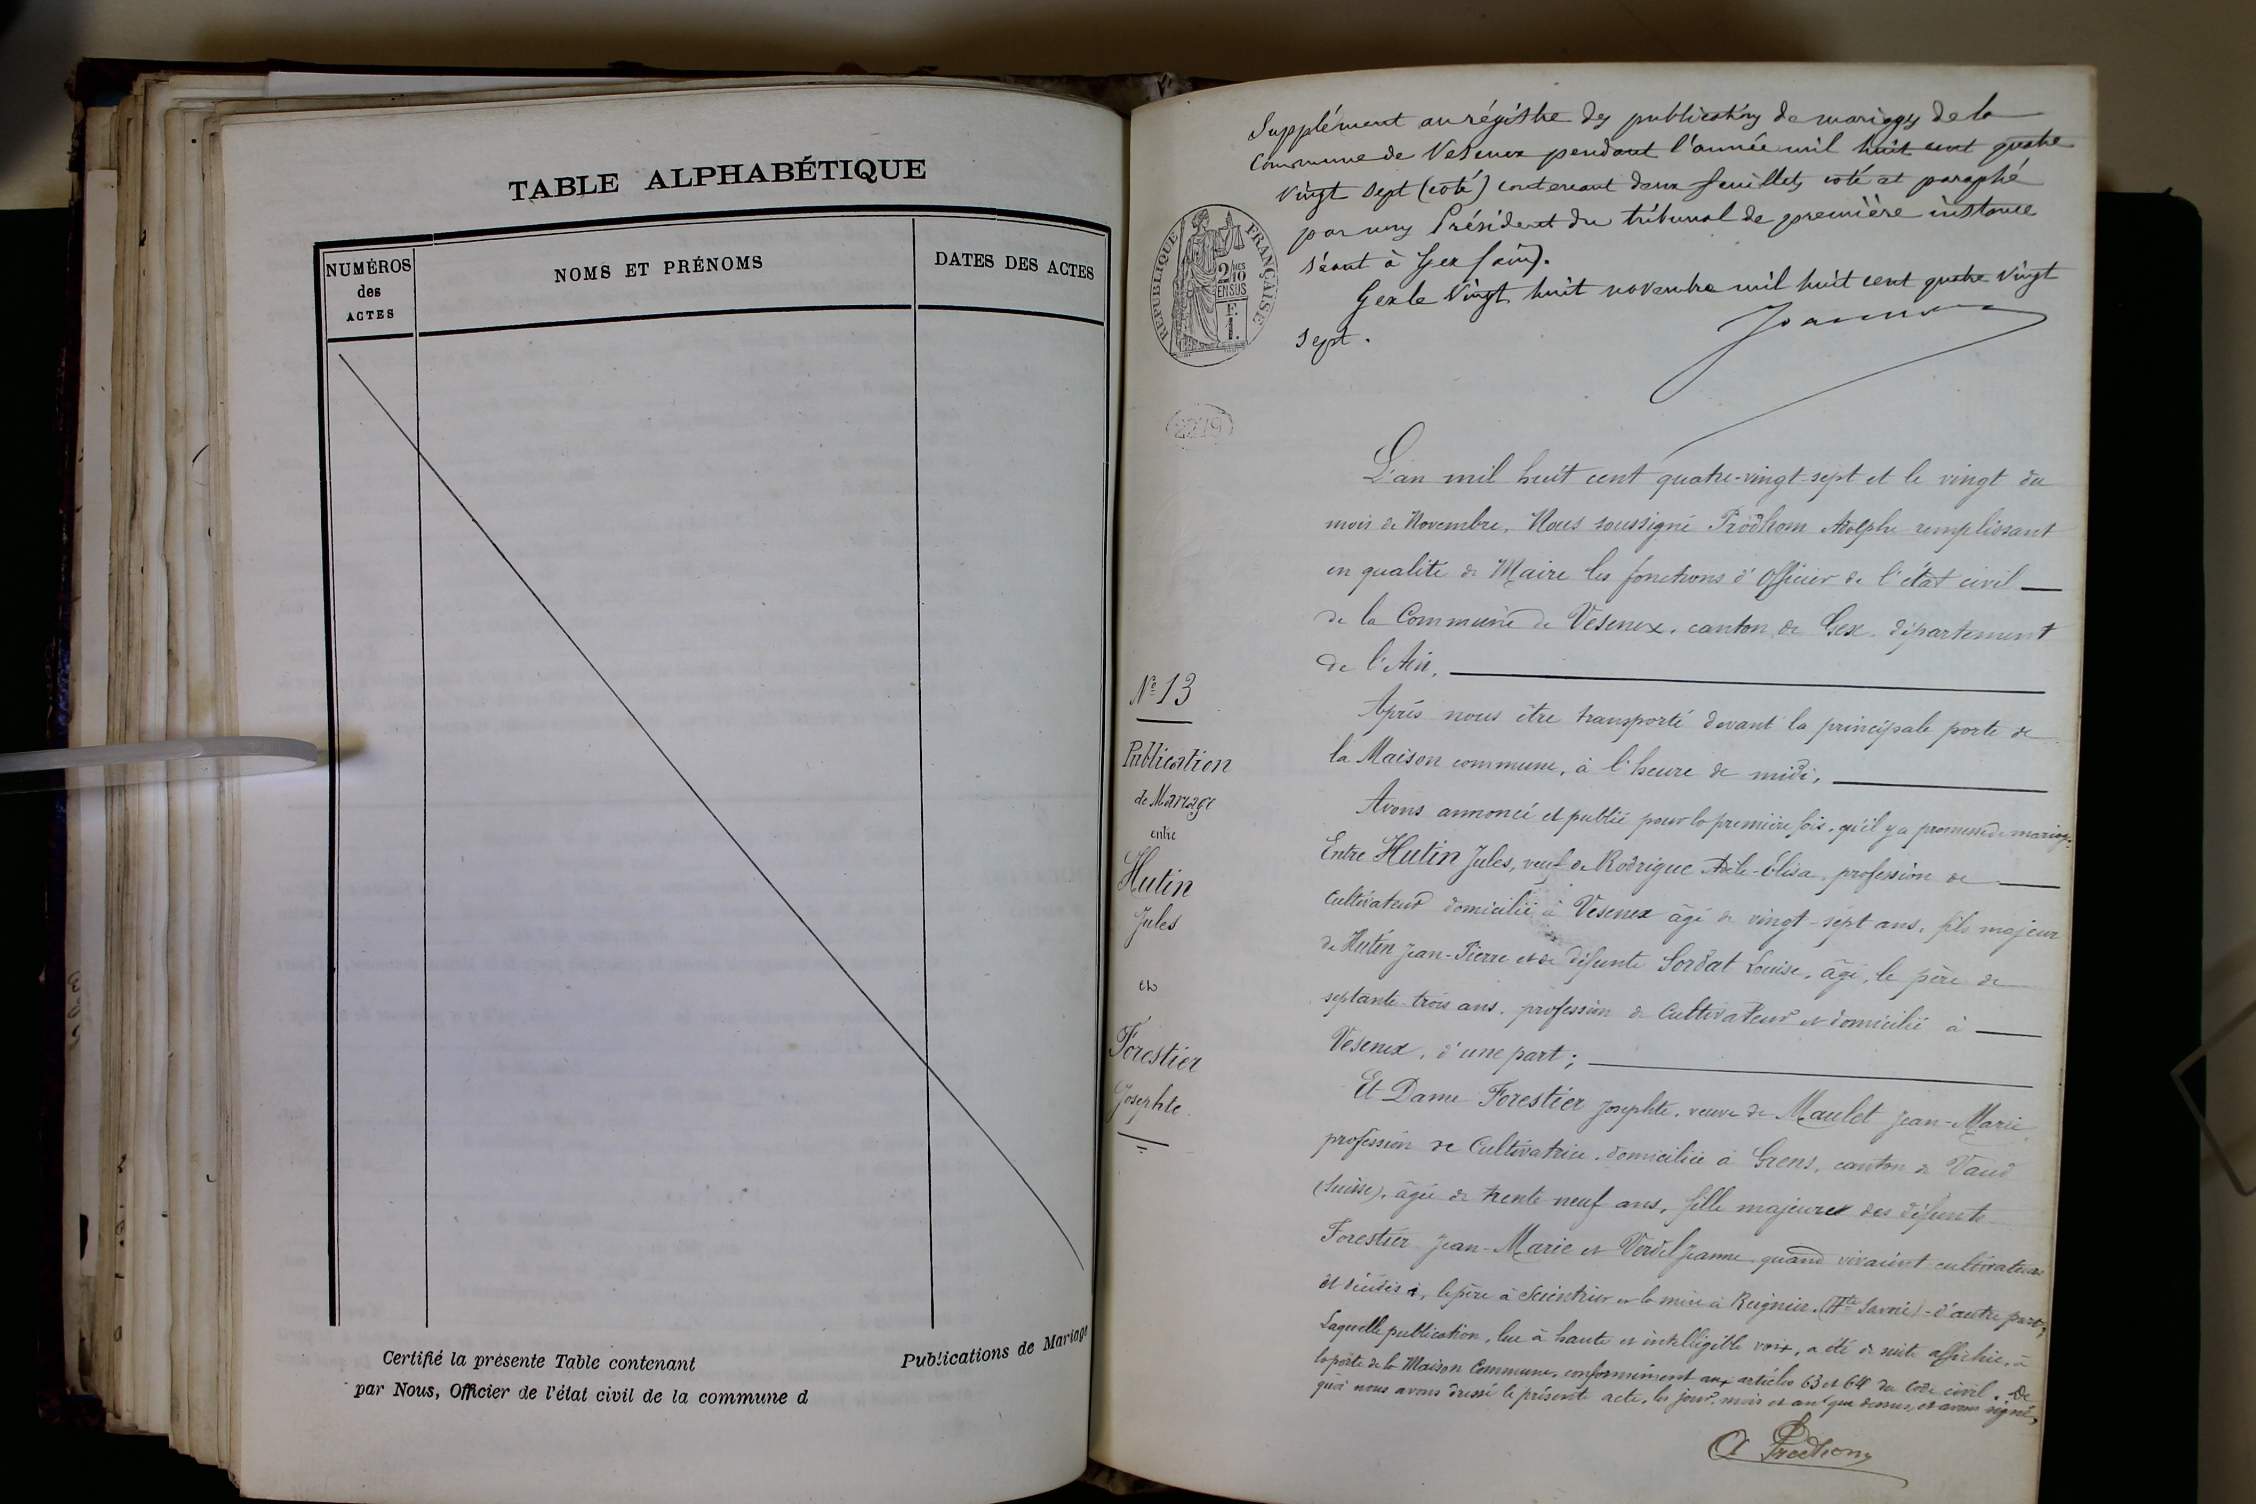 TABLE ALPHABÉTIQUE
NUMÉROS
des
ACTES
NOMS ET PRÉNOMS
DATES DES ACTES
Certifié la présente Table contenant
Publications de Mariage
par Nous, Officier de l'état civil de la commune d
Supplément au régistre des publications de mariages de la
Commune de Vesenex pendant l'année mil huit cent quatre
vingt sept (coté) contenant deux feuillets coté et paraphé
par nous Président du tribunal de première instance
séant à Gex (ain).
Gex le vingt huit novembre mil huit cent quatre vingt
sept.
RÉPUBLIQUE FRANÇAISE
2/10
EN SUS
F.
1.
2219
L'an mil huit cent quatre-vingt-sept et le vingt du
mois de Novembre, Nous soussigné Prodhom Adolphe remplissant
en qualité de Maire les fonctions d'Officier de l'état civil
de la Commune de Vesenex, canton de Gex, département
de l'Ain,
Après nous être transporté devant la principale porte de
la Maison commune, à l'heure de midi,
Avons annoncé et publié pour la première fois, qu'il y a promesse de mariage:
Entre Hutin Jules, veuf de Rodrigue Adèle-Elisa, profession de
Cultivateur domicilié à Vesenex âgé de vingt-sept ans, fils majeur
de Hutin Jean-Pierre et de défunte Sordat Louise, âgé, le père de
septante-trois ans, profession de Cultivateur et domicilié à
Vesenex, d'une part;
Et Dame Forestier Josephte, veuve de Maulet Jean-Marie
profession de Cultivatrice, domiciliée à Grens, canton de Vaud
(Suisse), âgée de trente-neuf ans, fille majeure des défunts
Forestier Jean-Marie et Verdel Jeanne quand vivaient cultivateurs
et décédés, le père à Scientrier et la mère à Reignier (Hte Savoie) - d'autre part;
Laquelle publication, lue à haute et intelligible voix, a été de suite affichée, à
la porte de la Maison Commune, conformément aux articles 63 et 64 du Code civil. De
quoi nous avons dressé le présente acte, les jour, mois et an que dessus, et avons signé,
A Prodhom
No 13
Publication
de Mariage
entre
Hutin
Jules
et
Forestier
Josephte